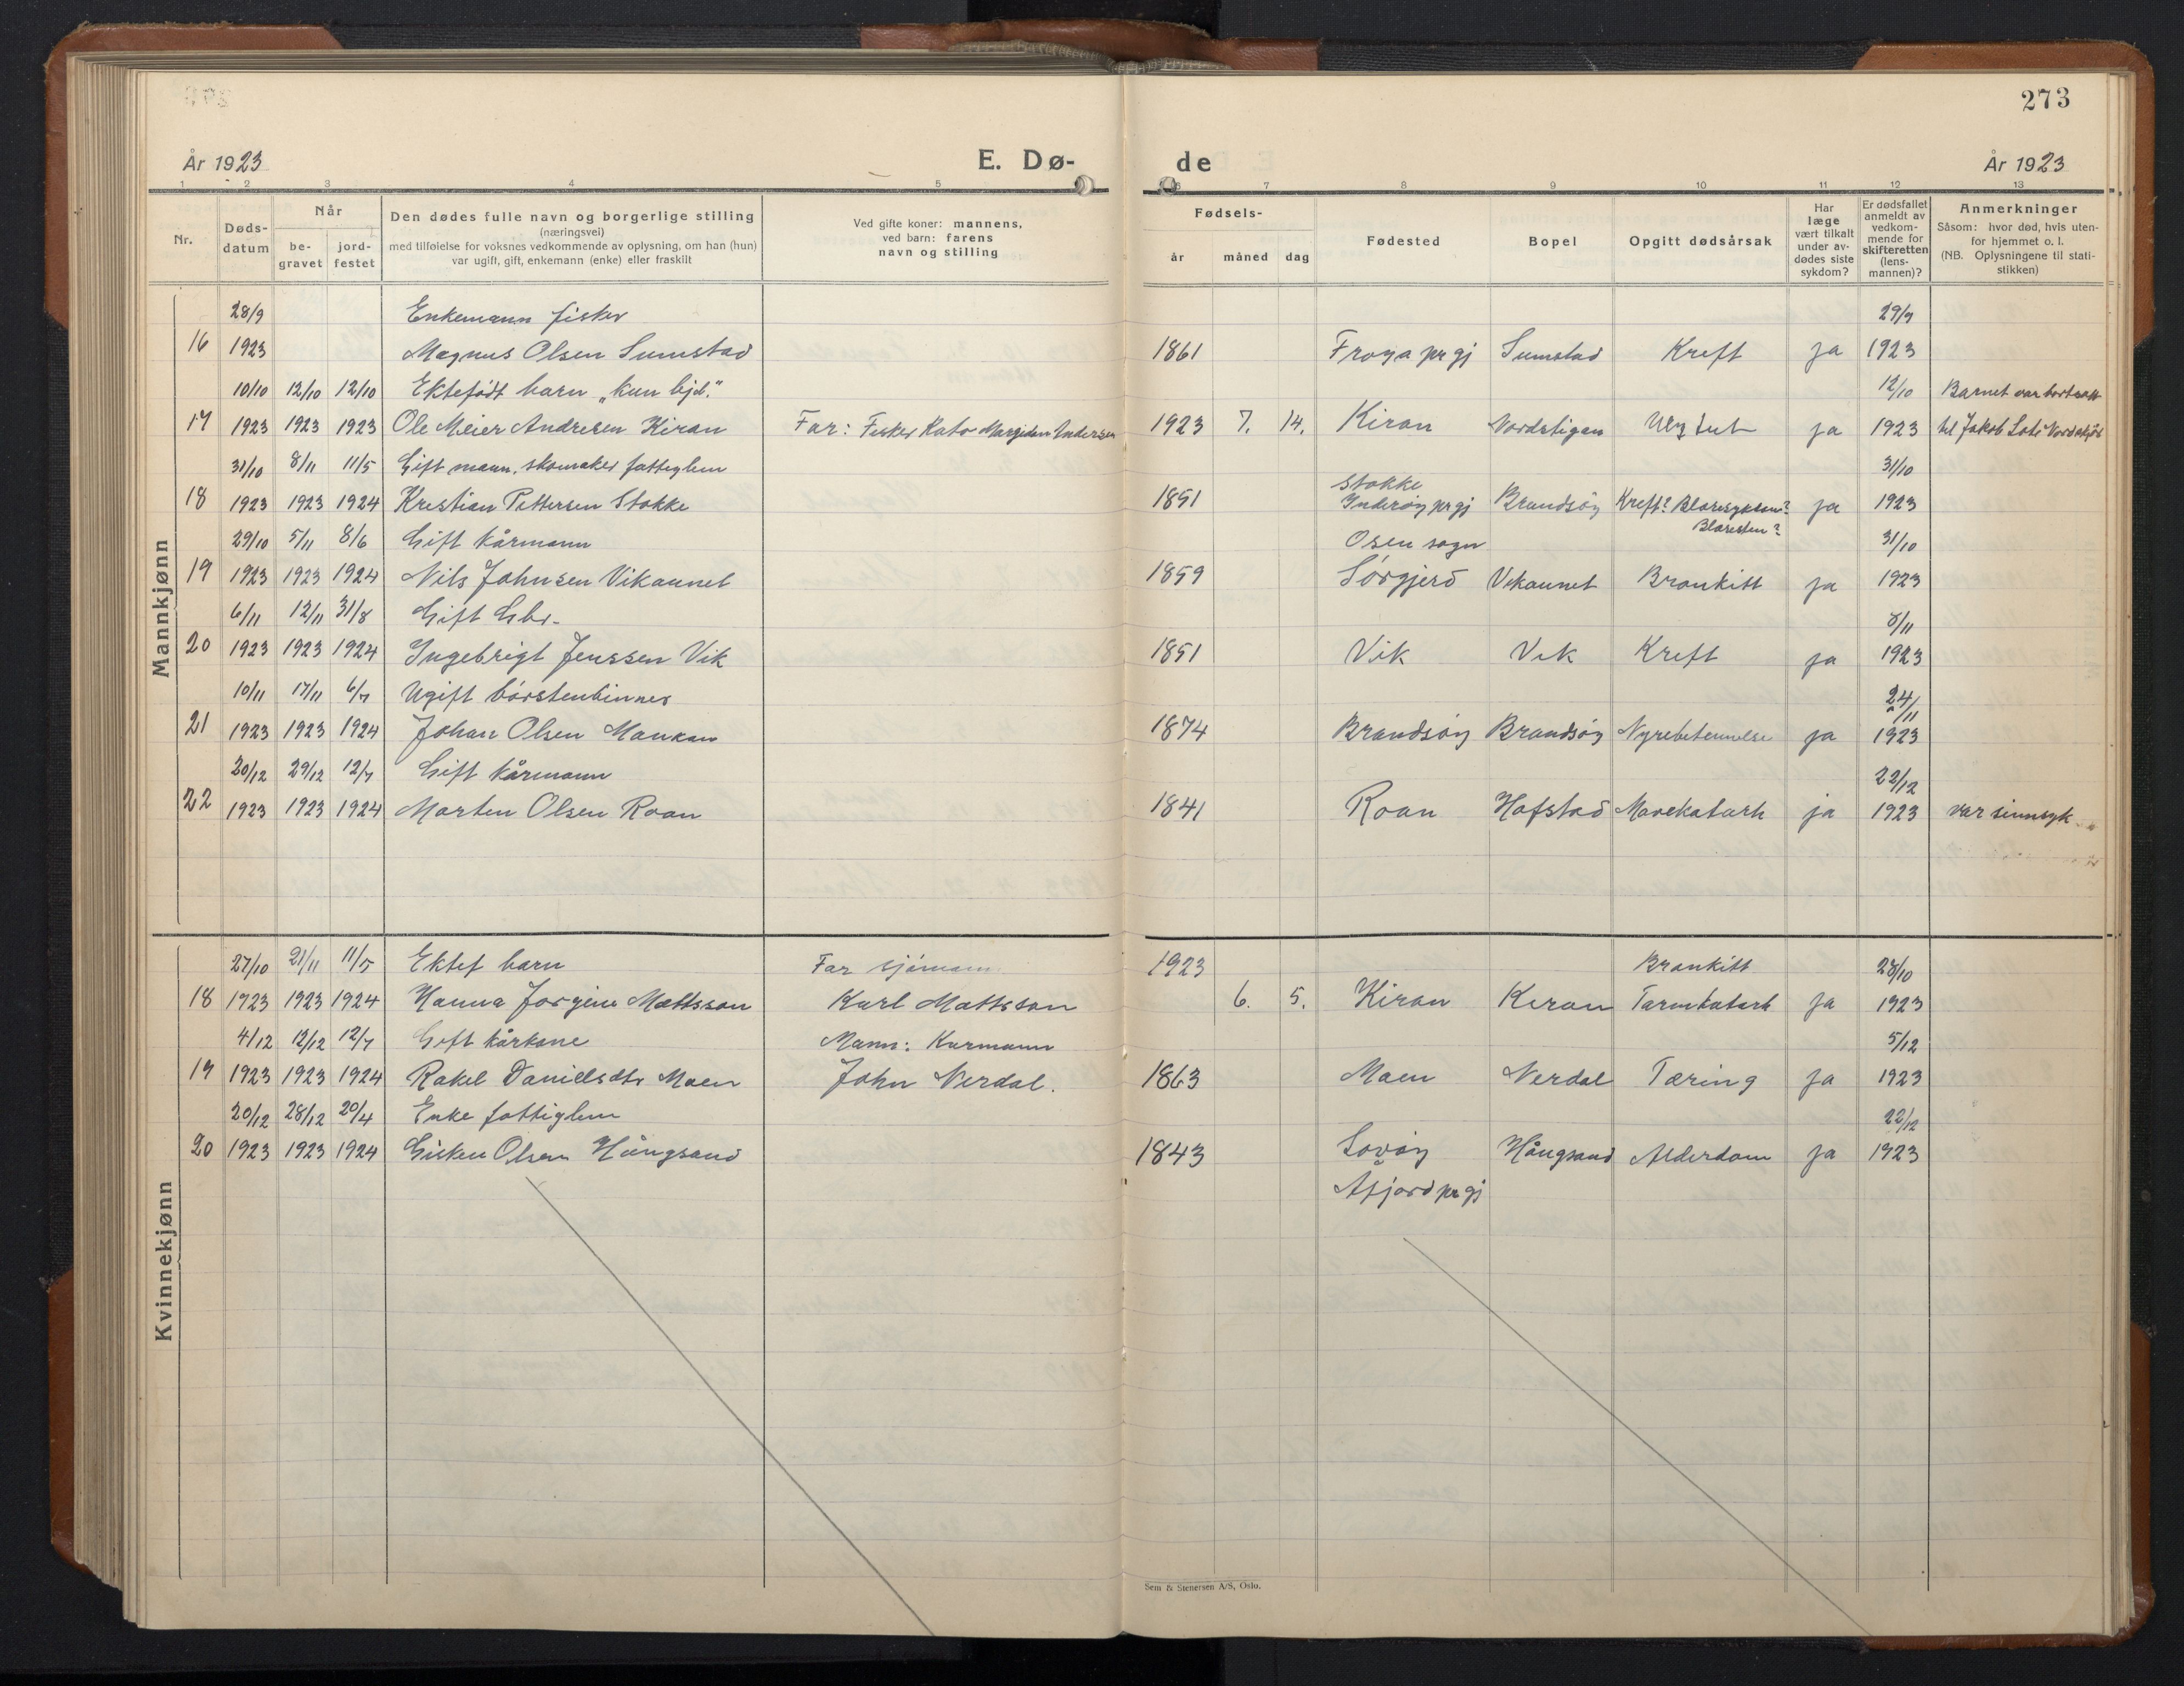 273
År 1923
E. Dø-
de
År 1923
1 2 3 4 5 6 7 8 9 10 11 12 13
Nr.
Døds-
datum
Når
be-
gravet
jord-
festet
Den dødes fulle navn og borgerlige stilling
(næringsvei)
med tilføielse for voksnes vedkommende av oplysning, om han (hun)
var ugift, gift, enkemann (enke) eller fraskilt
Ved gifte koner: mannens,
ved barn: farens
navn og stilling
Fødsels-
år måned dag
Fødested
Bopel
Opgitt dødsårsak
Har
læge
vært tilkalt
under av-
dødes siste
sykdom?
Er dødsfallet
anmeldt av
vedkom-
mende for
skifteretten
(lens-
mannen)?
Anmerkninger
Såsom: hvor død, hvis uten-
for hjemmet o. l.
(NB. Oplysningene til stati-
stikken)
Mannkjønn
28/9 Enkemann fisker 29/9
16 1923 Magnus Olsen Sumstad 1861 Frøya prgj Sumstad Kreft ja 1923
10/10 12/10 12/10 Ektefødt barn „kun hjd." 12/10 Barnet var bortsatt
17 1923 1923 1923 Ole Meier Andresen Kiran Far: Fisker Kato Margidon Andersen 1923 7. 14. Kiran Nordstigen ja 1923 til Jakob
31/10 8/11 11/5 Gift mann, skomaker fattiglem Stokke 31/10
18 1923 1923 1924 Kristian Pettersen Stokke 1851 Inderøy prgj Brandsøy Kreft? Blæresykdom? ja 1923
Blæresten?
29/10 5/11 8/6 Gift kårmann Osen sogn 31/10
19 1923 1923 1924 Nils Johnsen Vikaunet 1859 Sørgjerd Vikaunet Bronkitt ja 1923
6/11 12/11 31/8 Gift Gbr. 8/11
20 1923 1923 1924 Ingebrigt Jenssen Vik 1851 Vik Vik Kreft ja 1923
10/11 17/11 6/7 Ugift børstenbinner 24/11
21 1923 1923 1924 Johan Olsen Mankan 1874 Brandsøy Brandsøy Nyrebetennelse ja 1923
20/12 29/12 12/7 Gift kårmann 22/12
22 1923 1923 1924 Morten Olsen Roan 1841 Roan Hofstad Mavekatarh ja 1923 var sinnsyk
Kvinnekjønn
27/10 21/11 11/5 Ektef barn Far sjømann 1923 Bronkitt 28/10
18 1923 1923 1924 Hanna Jørgine Mattsson Karl Mattsson 6. 5. Kiran Kiran Tarmkatarh ja 1923
4/12 12/12 12/7 Gift kårkone Mann: Kårmann 5/12
19 1923 1923 1924 Rakel Danielsdtr Moen John Nerdal. 1863 Moen Nerdal Tæring ja 1923
20/12 28/12 20/4 Enke fattiglem 22/12
20 1923 1923 1924 Gisken Olsen Hångsand 1843 Lovøy Hångsand Alderdom ja 1923
Åfjord prgj
Sem & Stenersen A/S, Oslo.